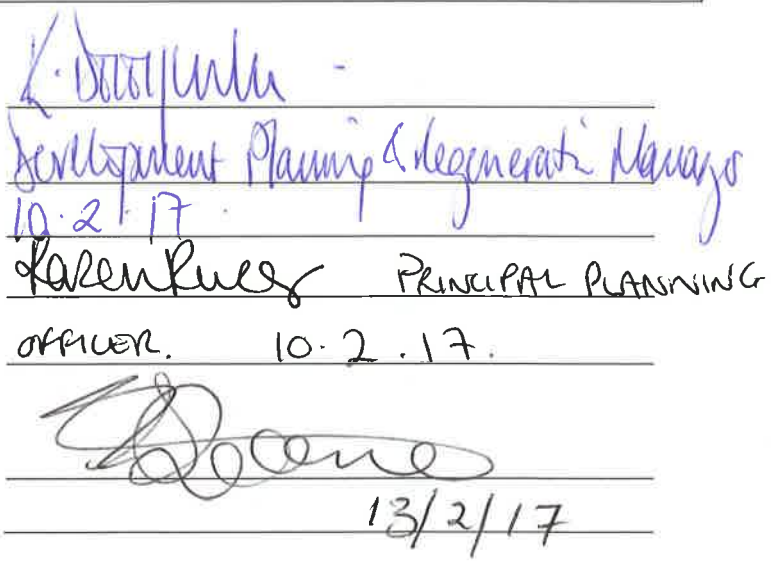 K.
Development Planning & Regeneration Manager
10.2.17.
Karen PRINCIPAL PLANNING
OFFICER. 10.2.17.
13/2/17